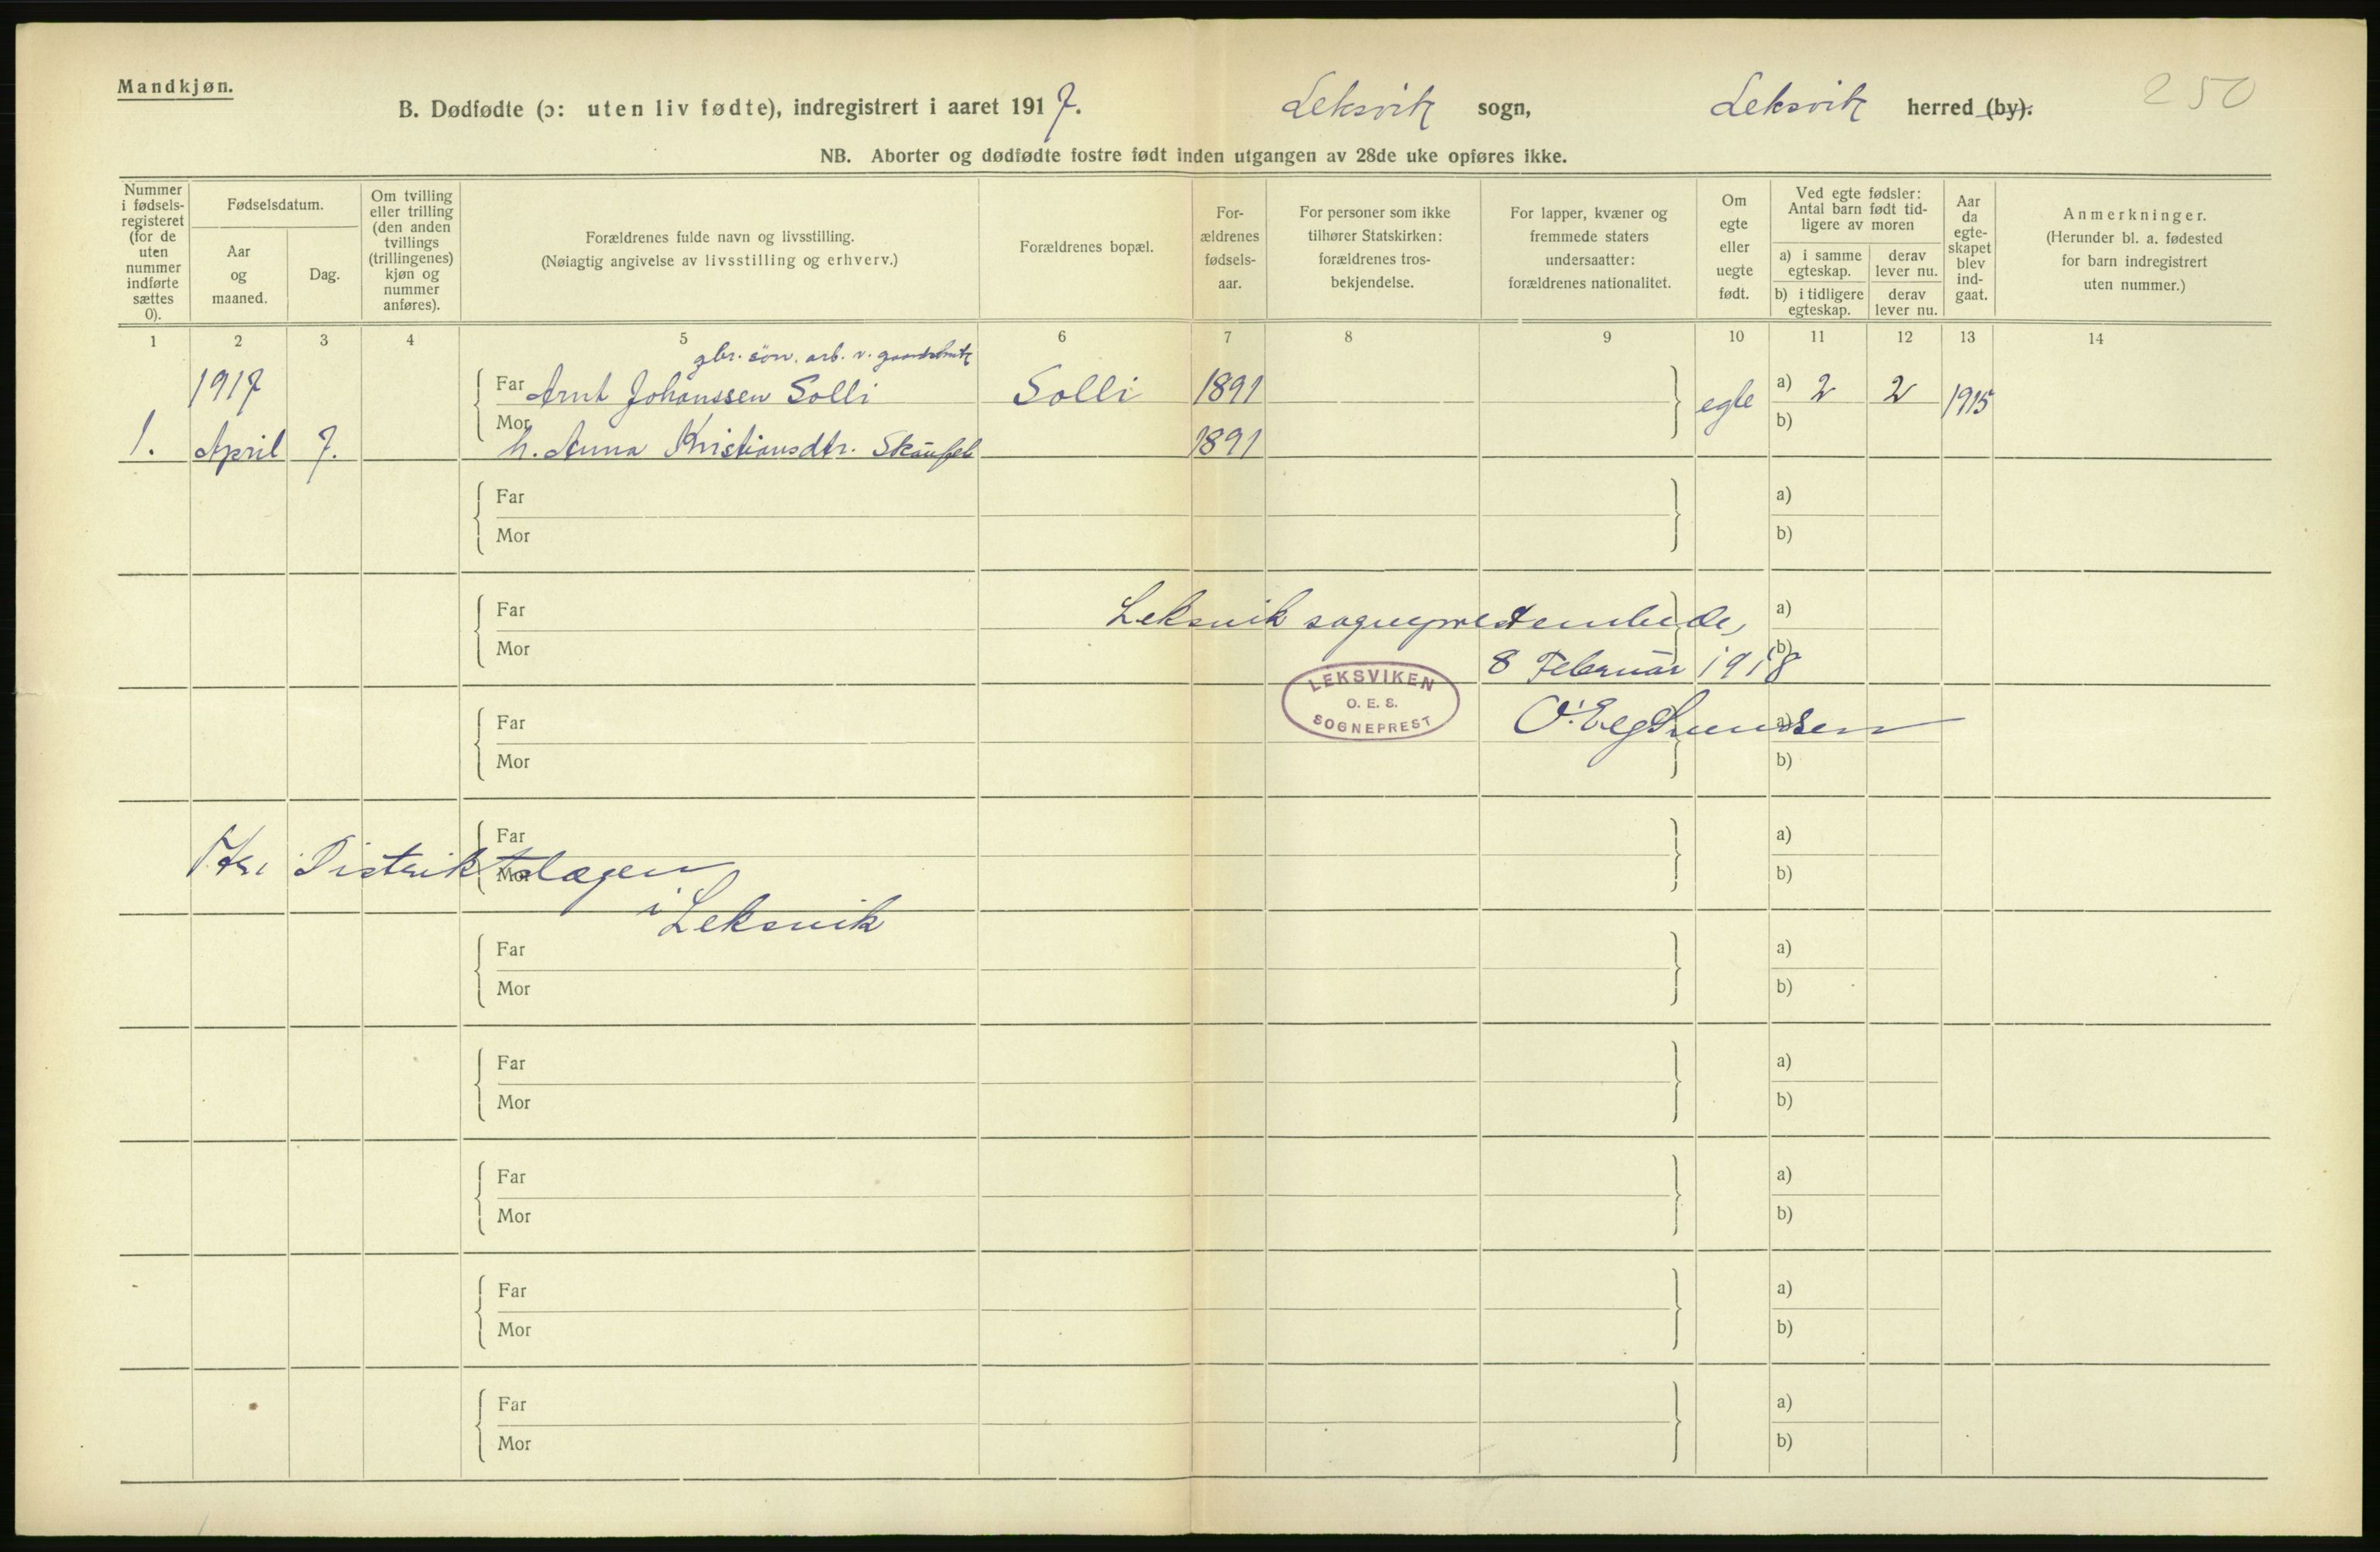 Mandkjøn.
250
B. Dødfødte (ɔ: uten liv fødte), indregistrert i aaret 1917. Leksvik sogn, Leksvik herred (by).
NB. Aborter og dødfødte fostre født inden utgangen av 28de uke opføres ikke.
Nummer i fødsels-registeret (for de uten nummer indførte sættes 0).
Fødselsdatum.
Aar og maaned.
Dag.
Om tvilling eller trilling (den anden tvillings (trillingenes) kjøn og nummer anføres).
Forældrenes fulde navn og livsstilling.
(Nøiagtig angivelse av livsstilling og erhverv.)
Forældrenes bopæl.
For-ældrenes fødsels-aar.
For personer som ikke tilhører Statskirken: forældrenes tros-bekjendelse.
For lapper, kvæner og fremmede staters undersaatter: forældrenes nationalitet.
Om egte eller uegte født.
Ved egte fødsler: Antal barn født tid-ligere av moren
a) i samme egteskap.
derav lever nu.
b) i tidligere egteskap.
derav lever nu.
Aar da egte-skapet blev ind-gaat.
Anmerkninger.
(Herunder bl. a. fødested for barn indregistrert uten nummer.)
1 2 3 4 5 6 7 8 9 10 11 12 13 14
gbr. søn. arb. v.
1917 Far Arnt Johanssen Solli Solli 1891 egte a) 2 2 1915
1. April 7. Mor h. Anna Kristiansdtr. 1891 b)
Far a)
Mor b)
Far Leksvik sogneprestembede, a)
Mor 8 Februar 1918 b)
LEKSVIKEN
O. E. S.
SOGNEPREST
Far a)
Mor b)
Far a)
Hr. Distriktslægen
Mor b)
i Leksvik
Far a)
Mor b)
Far a)
Mor b)
Far a)
Mor b)
Far a)
Mor b)
Far a)
Mor b)